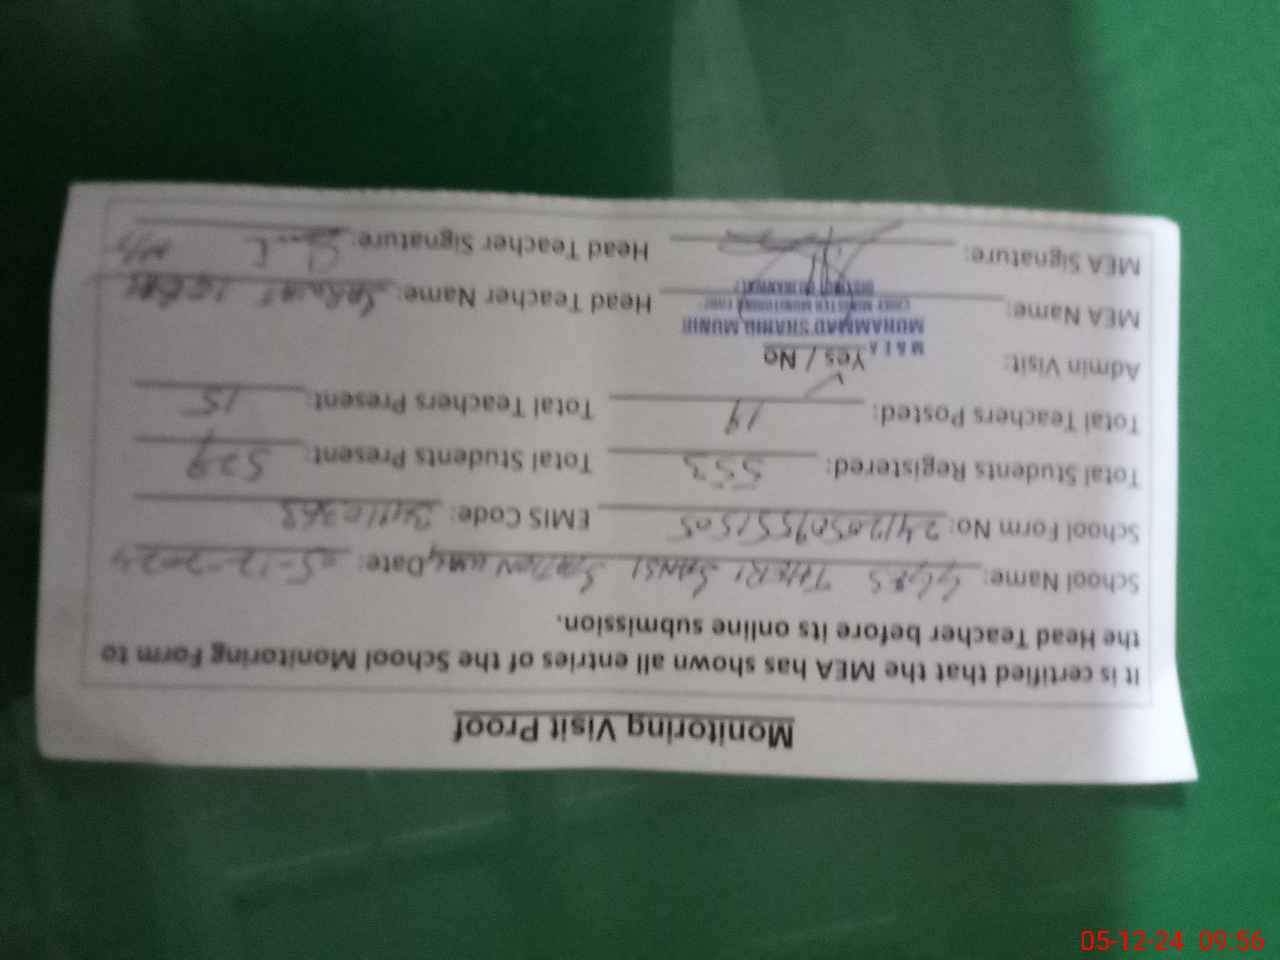 Monitoring Visit Proof
It is certified that the MEA has shown all entries of the School Monitoring Form to
the Head Teacher before its online submission.
School Name: THERI SANSI STATION Date: 05-12-2024
School Form No: EMIS Code:
Total Students Registered: 553 Total Students Present: 529
Total Teachers Posted: 19 Total Teachers Present: 15
Admin Visit: Yes / No
M & E A
MUHAMMAD SHAHID MUNIR
CHIEF MINISTER MONITORING FORCE
MEA Name: Head Teacher Name:
MEA Signature: Head Teacher Signature:
05-12-24 09:56